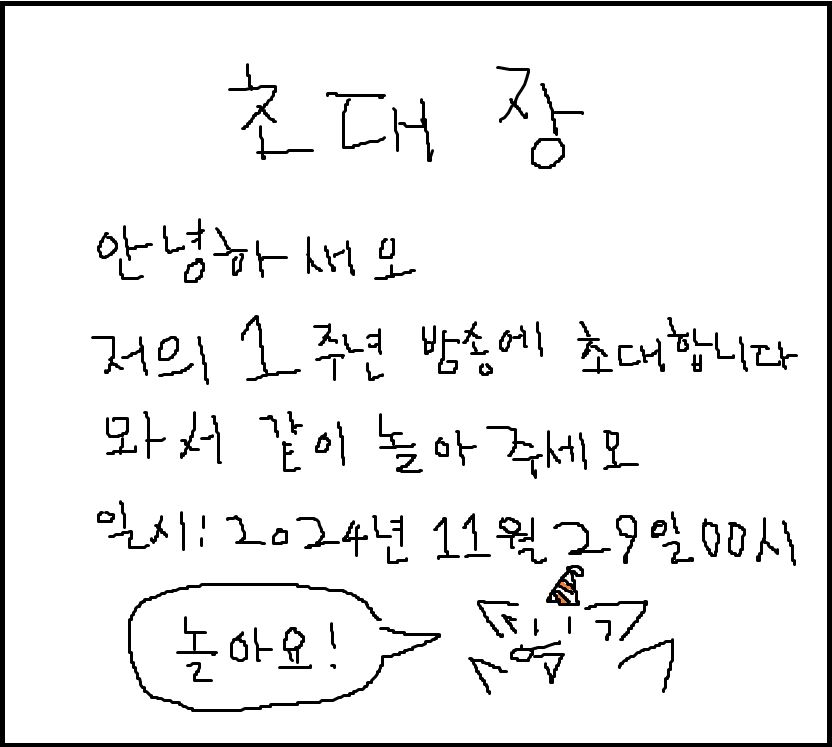 초대장
안녕하세요
저의 1주년 방송에 초대합니다
와서 같이 놀아주세요
일시: 2024년 11월 29일 00시
놀아요!